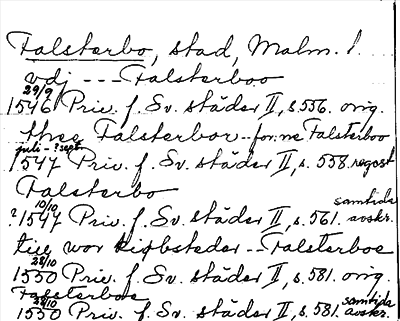 Falsterbo, stad, Malm. l.
vdj --- Falsterboo
29/9
1546 Priv. f. Sv. städer II, s. 556. orig.
thee Falsterbor -- for:ne Falsterboo
juli - ? sept.
1547 Priv. f. Sv. städer II, s. 558. regest
Falsterbo
10/10 samtida
?1547 Priv. f. Sv. städer II, s. 561. avskr.
tiil wor kiøbsteder -- Falsterboe
28/10
1550 Priv. f. Sv. städer II, s. 581. orig.
Falsterboe
28/10 samtida
1550 Priv. f. Sv. städer II, s. 581. avskr.